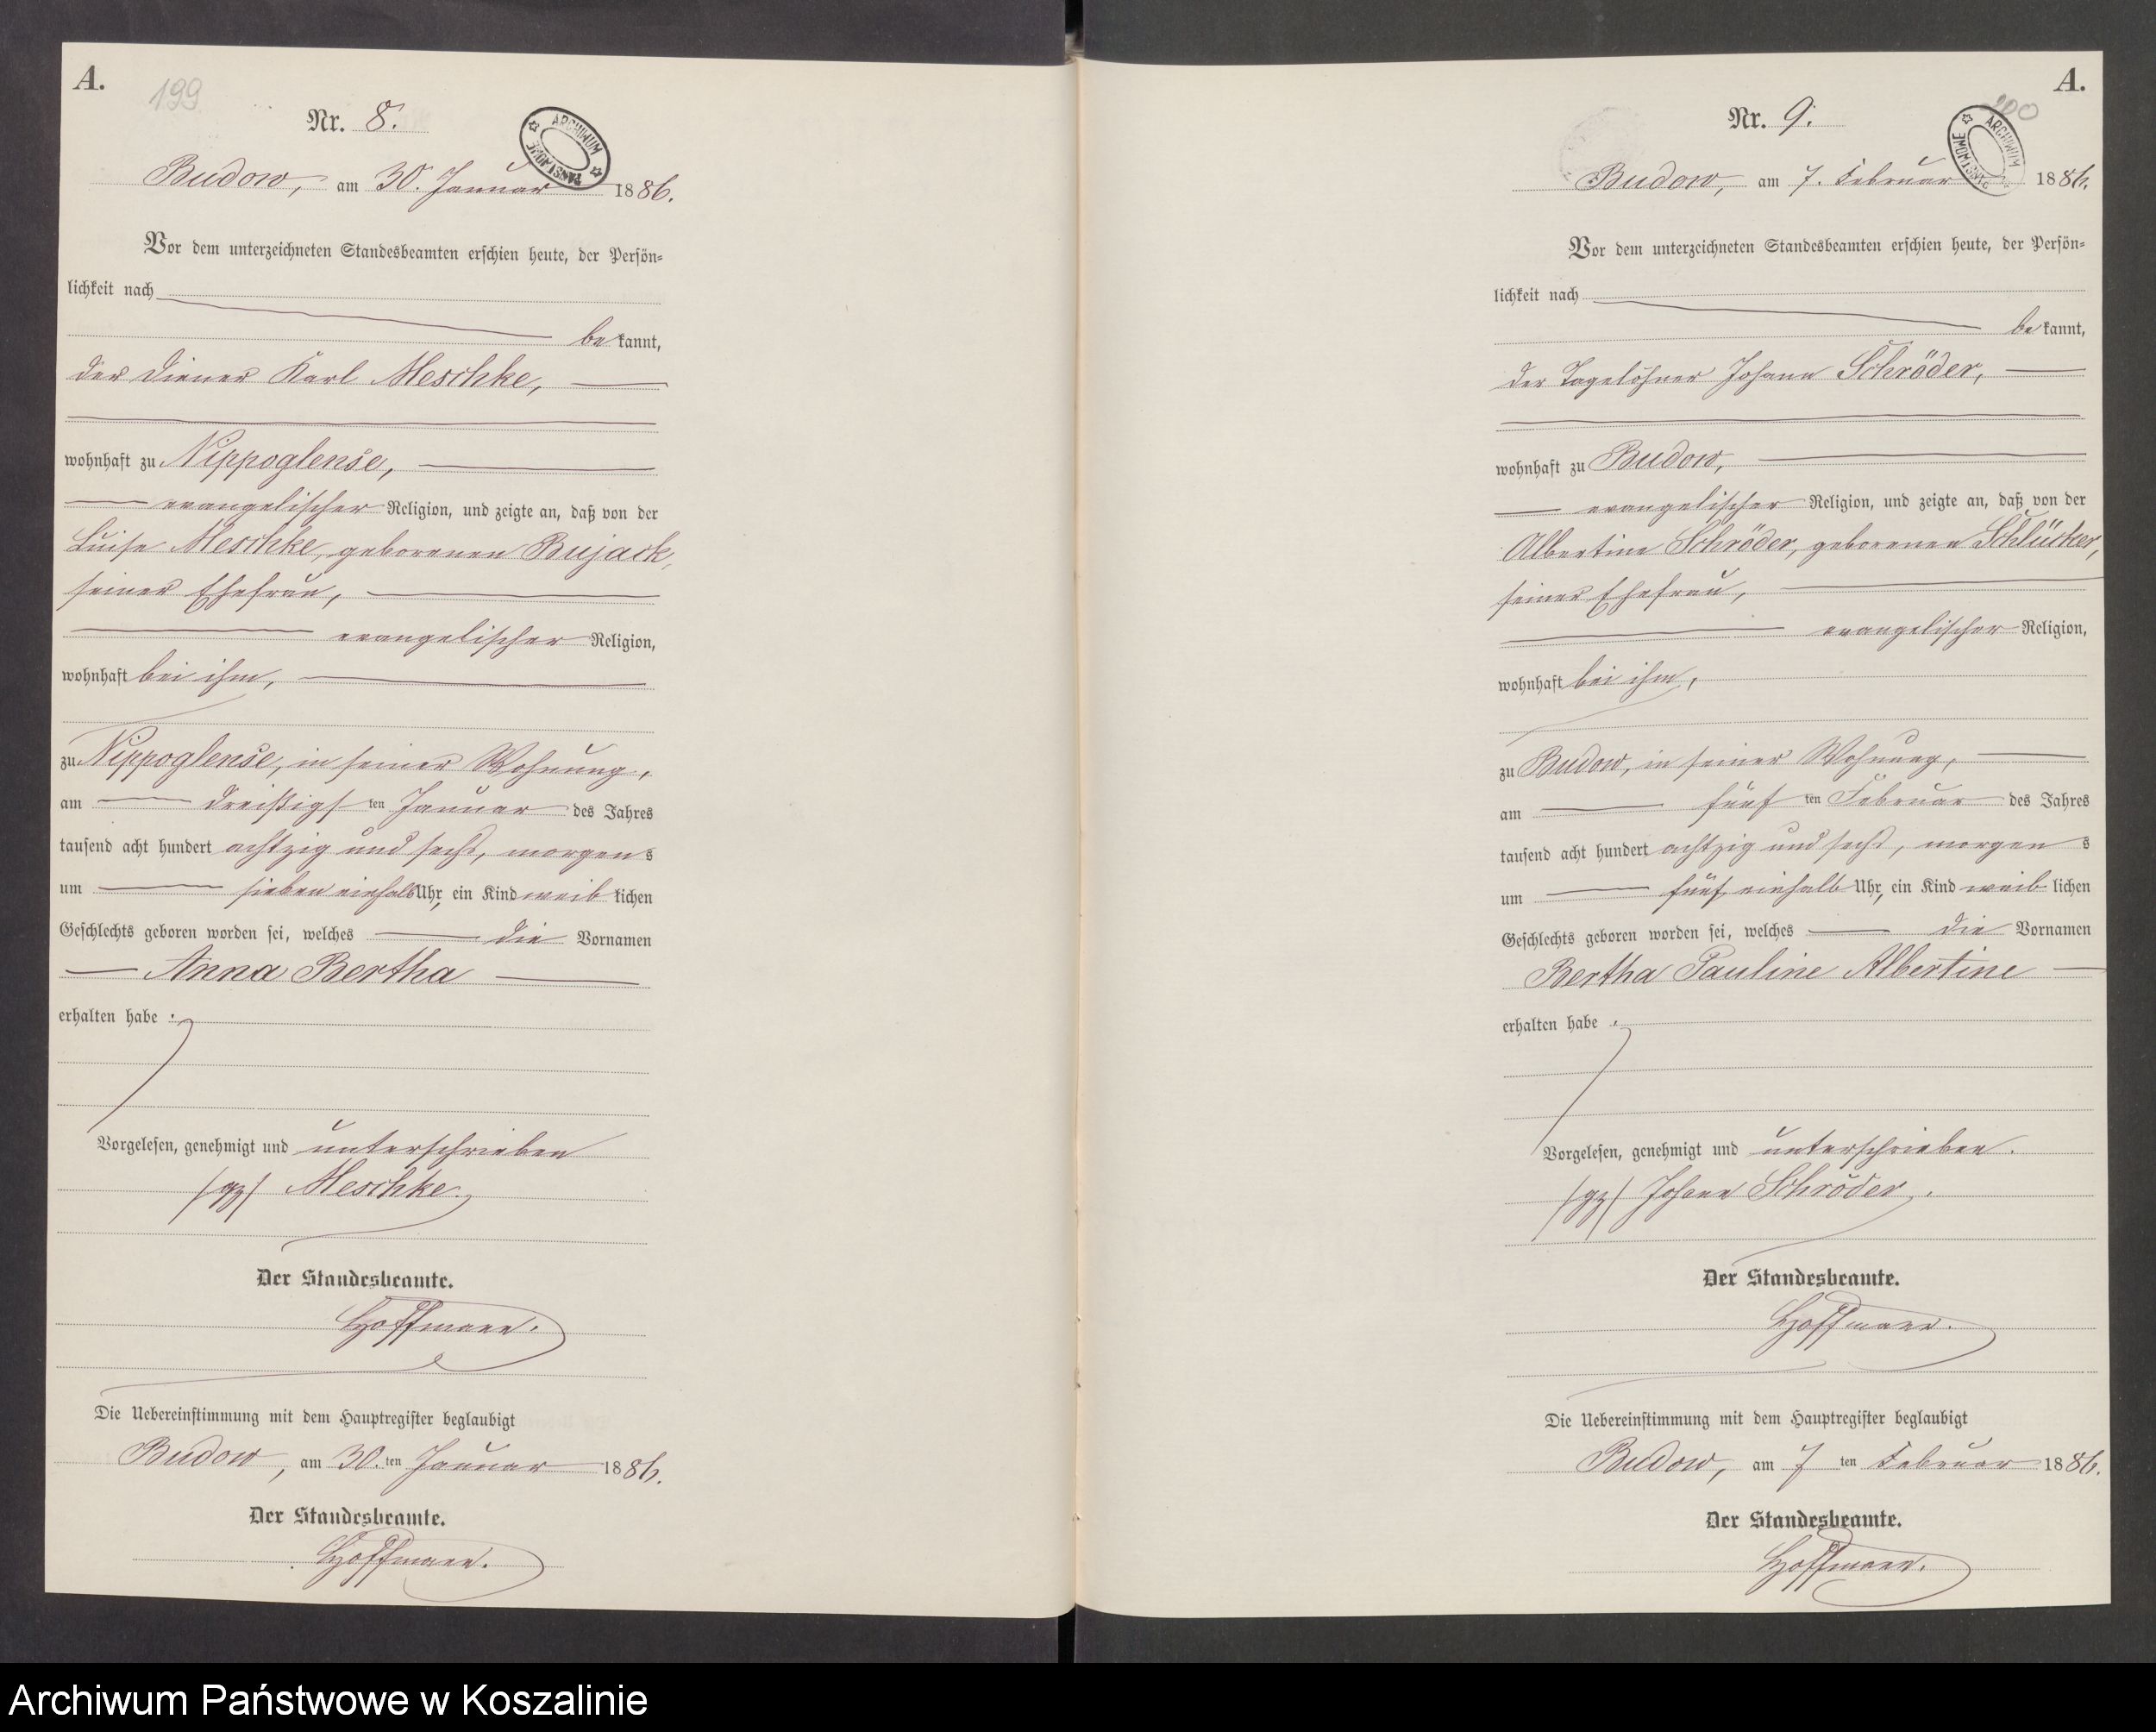 A.
199
Nr. 8.
ARCHIWUM PAŃSTWOWE
Budow, am 30. Januar 1886.
Vor dem unterzeichneten Standesbeamten erschien heute, der Persön-
lichkeit nach
bekannt,
der Diener Karl Meschke,
wohnhaft zu Nippoglense,
evangelischer Religion, und zeigte an, daß von der
Luise Meschke, geborenen Bujack,
seiner Ehefrau,
evangelischer Religion,
wohnhaft bei ihm,
zu Nippoglense, in seiner Wohnung,
am dreißigsten Januar des Jahres
tausend acht hundert achtzig und sechs, morgens
um sieben einhalb Uhr, ein Kind weiblichen
Geschlechts geboren worden sei, welches die Vornamen
Anna Bertha
erhalten habe.
Vorgelesen, genehmigt und unterschrieben
/gz/ Meschke.
Der Standesbeamte.
Hoffmann.
Die Uebereinstimmung mit dem Hauptregister beglaubigt
Budow, am 30.ten Januar 1886.
Der Standesbeamte.
Hoffmann.
A.
200
Nr. 9.
ARCHIWUM PAŃSTWOWE
Budow, am 7. Februar 1886.
Vor dem unterzeichneten Standesbeamten erschien heute, der Persön-
lichkeit nach
bekannt,
der Tagelöhner Johann Schröder,
wohnhaft zu Budow,
evangelischer Religion, und zeigte an, daß von der
Albertine Schröder, geborenen
seiner Ehefrau,
evangelischer Religion,
wohnhaft bei ihm,
zu Budow, in seiner Wohnung,
am fünften Februar des Jahres
tausend acht hundert achtzig und sechs, morgens
um fünf einhalb Uhr, ein Kind weiblichen
Geschlechts geboren worden sei, welches die Vornamen
Bertha Pauline Albertine
erhalten habe.
Vorgelesen, genehmigt und unterschrieben.
/gz/ Johann Schröder.
Der Standesbeamte.
Hoffmann.
Die Uebereinstimmung mit dem Hauptregister beglaubigt
Budow, am 7 ten Februar 1886.
Der Standesbeamte.
Hoffmann.
Archiwum Państwowe w Koszalinie